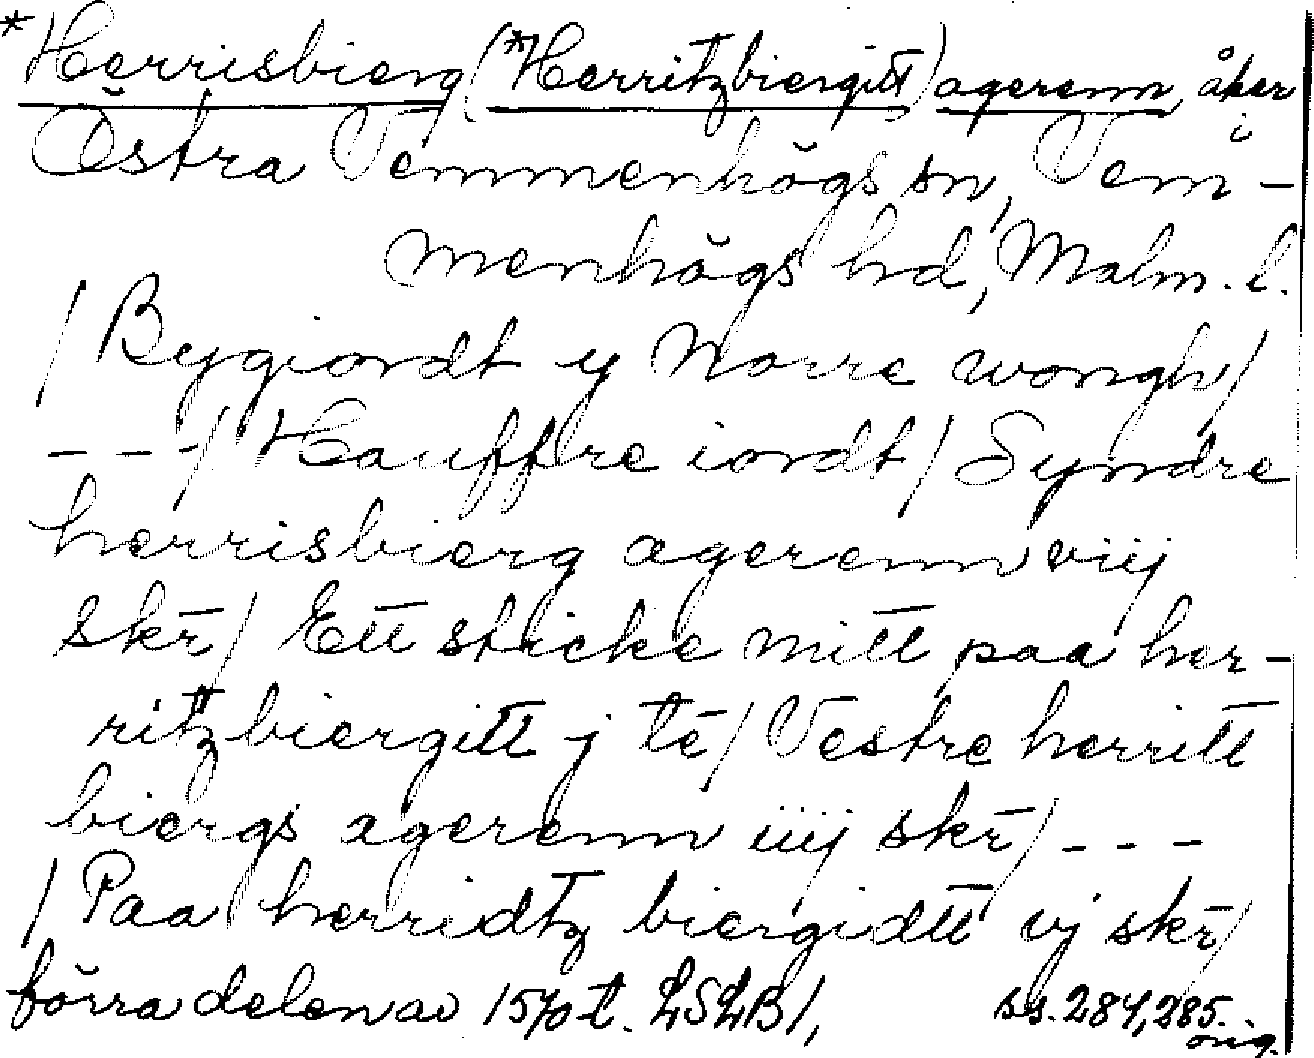 *Herrisbierg (*Herritzbiergitt) agerenn, åker i
Östra Vemmenhögs sn, Vem-
menhögs hd, Malm. l.
/ Bygiordt y Norre wongh/
---/ Hauffre iordt / Syndre
herrisbierg agerenn viij
skr̄/ Ett sticke mitt paa her-
ritzbiergitt j tē/ Vestre herritt
biergs agerenn iiij skr̄/ ---
/ Paa herridtz biergidtt vj skr̄/
förra delen av 1570-t. LSLB 1, ss. 284, 285.
orig.